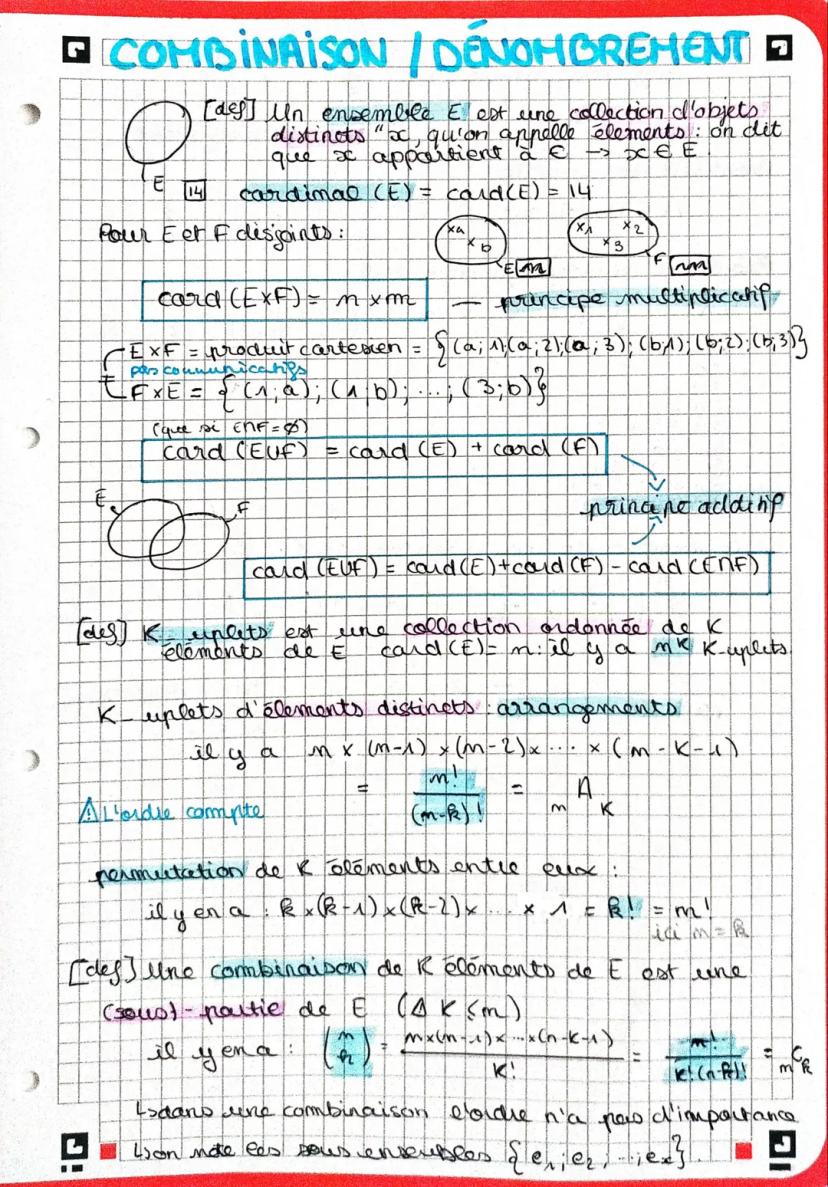 COMBINAISON / DÉNOMBREMENT
[def] Un ensemble E est une collection d'objets
distincts "x, qu'on appelle éléments : on dit
que x appartient à E → x ∈ E.
E 14 cardinal (E) = card(E) = 14
Pour E et F disjoints :
xa xb E n
x1 x2 x3 F m
card (E×F) = n × m — principe multiplicatif
E×F = produit cartesien = {(a;1);(a;2);(a;3);(b;1);(b;2);(b;3)}
≠ pas communicatifs
F×E = {(1;a);(1;b);...;(3;b)}
(que si E∩F=∅)
card (E∪F) = card (E) + card (F)
E F
principe additif
card (E∪F) = card(E)+card(F) - card(E∩F)
[def] K-uplets est une collection ordonnée de K
éléments de E card(E)= n : il y a n^K K-uplets.
K-uplets d'élements distincts : arrangements
il y a n × (n-1) × (n-2) × ... × (n-K-1)
= n! / (n-k)! = nAK
⚠ L'ordre compte
permutation de K éléments entre eux :
il y en a : k × (k-1) × (k-2) × ... × 1 = k! = n!
ici n = k
[def] Une combinaison de K éléments de E est une
(sous)-partie de E (⚠ K ≤ n)
il y en a : (n k) = n×(n-1)×...×(n-k-1) / K! = n! / k!(n-k)! = nCk
↳ dans une combinaison l'ordre n'a pas d'importance
↳ on note les sous ensembles {e1; e2; ...; ex}.